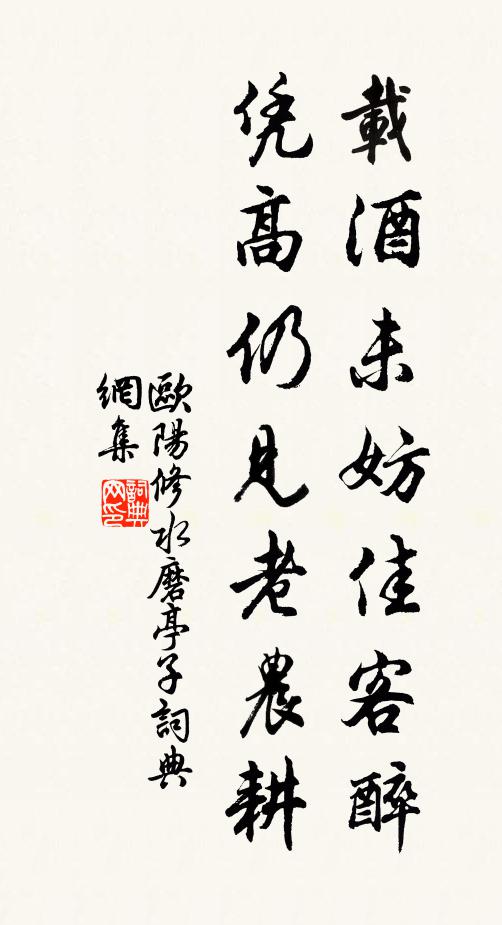 載酒未妨佳客醉
凭高仍見老農耕
歐陽修水磨亭子詞典
網集
詞典
网印